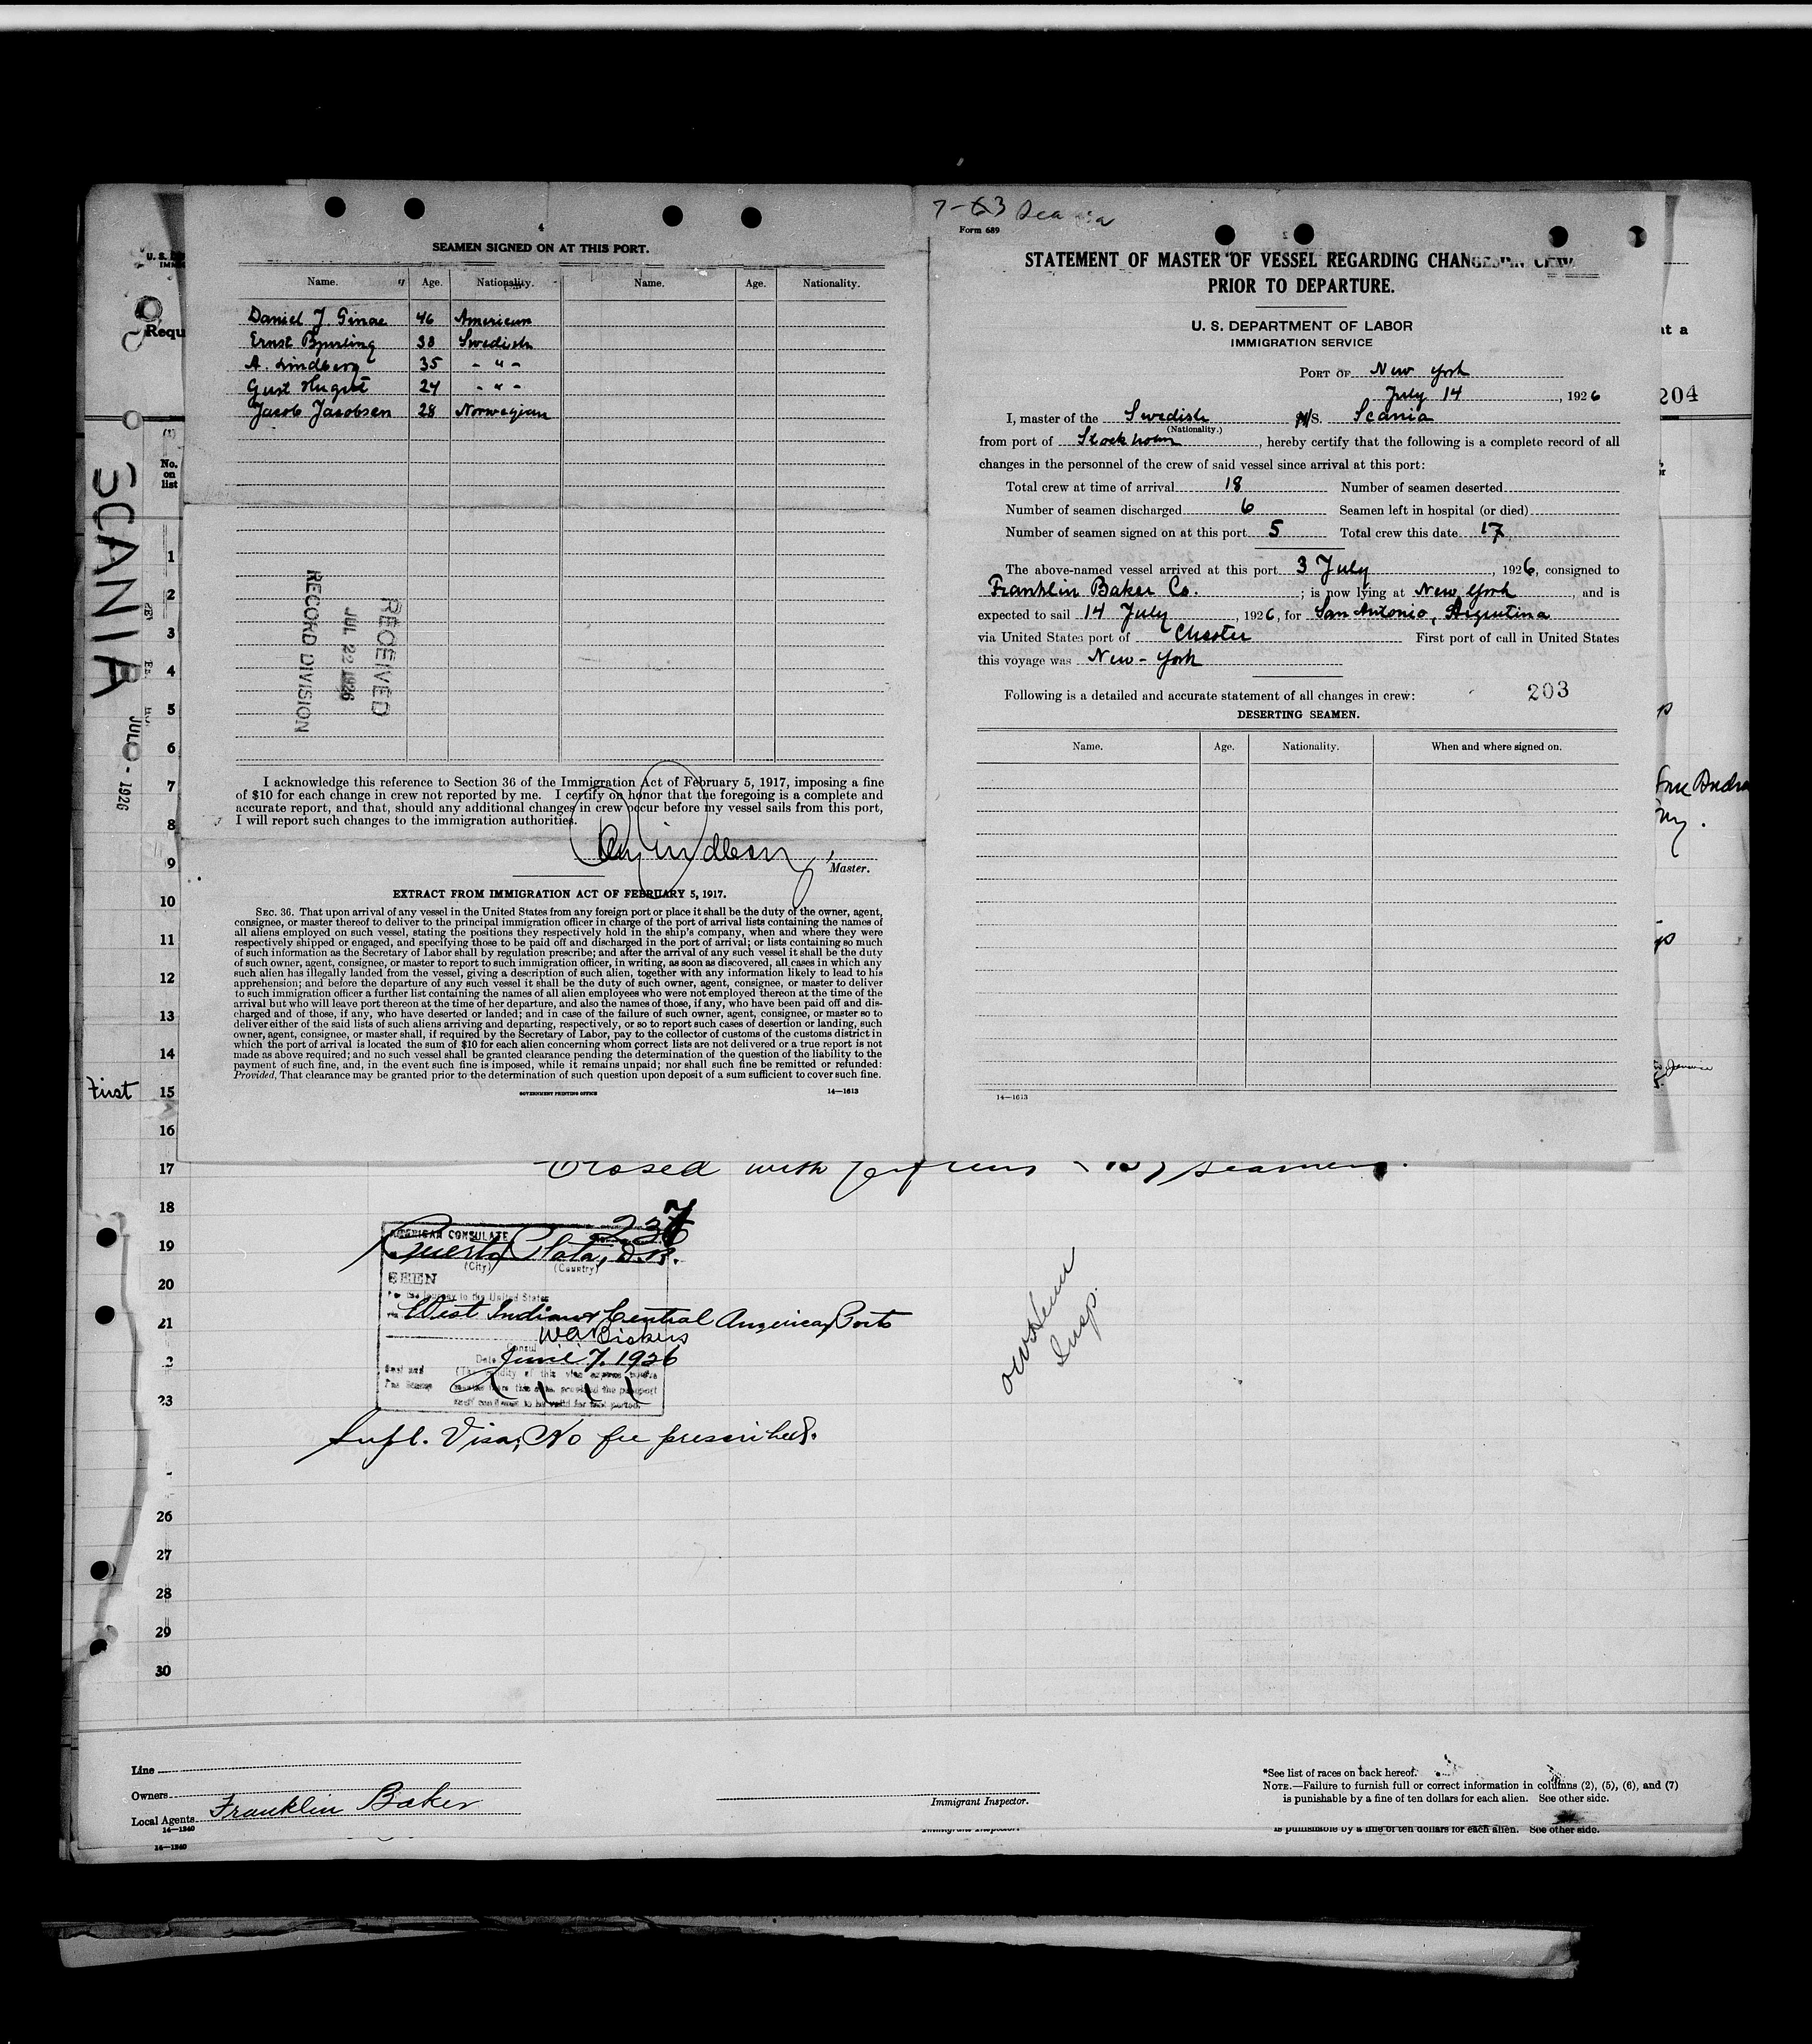 4
SEAMEN SIGNED ON AT THIS PORT.
Name. Age. Nationality. Name. Age. Nationality.
Daniel J. 46 American
Ernst 38 Swedish
A. Lindberg 35 - " -
Gust 24 - " -
Jacob Jacobsen 28 Norwegian
RECEIVED
JUL 22 1926
RECORD DIVISION
I acknowledge this reference to Section 36 of the Immigration Act of February 5, 1917, imposing a fine
of $10 for each change in crew not reported by me. I certify on honor that the foregoing is a complete and
accurate report, and that, should any additional changes in crew occur before my vessel sails from this port,
I will report such changes to the immigration authorities.
Master.
EXTRACT FROM IMMIGRATION ACT OF FEBRUARY 5, 1917.
SEC. 36. That upon arrival of any vessel in the United States from any foreign port or place it shall be the duty of the owner, agent,
consignee, or master thereof to deliver to the principal immigration officer in charge of the port of arrival lists containing the names of
all aliens employed on such vessel, stating the positions they respectively hold in the ship's company, when and where they were
respectively shipped or engaged, and specifying those to be paid off and discharged in the port of arrival; or lists containing so much
of such information as the Secretary of Labor shall by regulation prescribe; and after the arrival of any such vessel it shall be the duty
of such owner, agent, consignee, or master to report to such immigration officer, in writing, as soon as discovered, all cases in which any
such alien has illegally landed from the vessel, giving a description of such alien, together with any information likely to lead to his
apprehension; and before the departure of any such vessel it shall be the duty of such owner, agent, consignee, or master to deliver
to such immigration officer a further list containing the names of all alien employees who were not employed thereon at the time of the
arrival but who will leave port thereon at the time of her departure, and also the names of those, if any, who have been paid off and dis-
charged and of those, if any, who have deserted or landed; and in case of the failure of such owner, agent, consignee, or master so to
deliver either of the said lists of such aliens arriving and departing, respectively, or so to report such cases of desertion or landing, such
owner, agent, consignee, or master shall, if required by the Secretary of Labor, pay to the collector of customs of the customs district in
which the port of arrival is located the sum of $10 for each alien concerning whom correct lists are not delivered or a true report is not
made as above required; and no such vessel shall be granted clearance pending the determination of the question of the liability to the
payment of such fine, and, in the event such fine is imposed, while it remains unpaid; nor shall such fine be remitted or refunded:
Provided, That clearance may be granted prior to the determination of such question upon deposit of a sum sufficient to cover such fine.
GOVERNMENT PRINTING OFFICE 14—1613
7-63 Scania
Form 689
STATEMENT OF MASTER OF VESSEL REGARDING CHANGES IN CREW
PRIOR TO DEPARTURE.
U. S. DEPARTMENT OF LABOR
IMMIGRATION SERVICE
PORT OF New York
July 14, 1926
I, master of the Swedish M/S. Scania
(Nationality.)
from port of Stockholm, hereby certify that the following is a complete record of all
changes in the personnel of the crew of said vessel since arrival at this port:
Total crew at time of arrival 18 Number of seamen deserted
Number of seamen discharged 6 Seamen left in hospital (or died)
Number of seamen signed on at this port 5 Total crew this date 17
The above-named vessel arrived at this port 3 July, 1926, consigned to
Franklin Baker Co.; is now lying at New York, and is
expected to sail 14 July, 1926, for San Antonio, Argentina
via United States port of Chester First port of call in United States
this voyage was New-York
Following is a detailed and accurate statement of all changes in crew: 203
DESERTING SEAMEN.
Name. Age. Nationality. When and where signed on.
14—1613
U. S.
Requ
at a
204
SCANIA
JUL - 1926
(1)
No.
on
list
1
2
3
4
5
6
7
8
9
10
11
12
13
14
First 15
16
17
18
19
20
21
23
26
27
28
29
30
Closed with seamen.
237
AMERICAN CONSULATE
Puerto Plata, D.R.
(City) (Country)
SEEN
For the journey to the United States
West Indian & Central American Ports
Consul
Date June 7, 1926
Supl. Visa, No fee prescribed.
Insp.
Line
Owners
Local Agents Franklin Baker
14—1340
Immigrant Inspector.
*See list of races on back hereof.
NOTE.—Failure to furnish full or correct information in columns (2), (5), (6), and (7)
is punishable by a fine of ten dollars for each alien. See other side.
is punishable by a fine of ten dollars for each alien. See other side.
14—1340